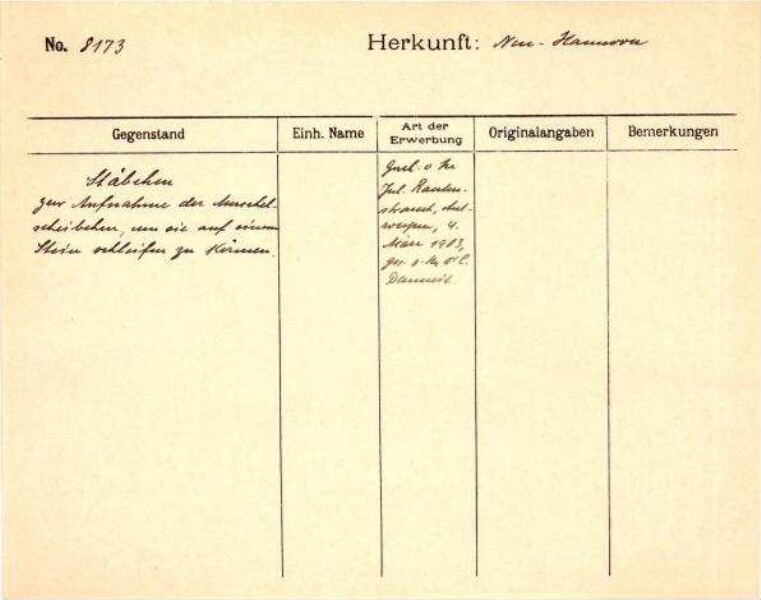 No. 8173
Herkunft: Neu-Hannover
Gegenstand
Einh. Name
Art der Erwerbung
Originalangaben
Bemerkungen
Stäbchen
zur Aufnahme der Muschel-
scheibchen, um sie auf einem
Stein schleifen zu können.
v. Hr.
Jul. Rauten-
strauch, Ant-
werpen, 4.
März 1903,
ges. v. Hr.